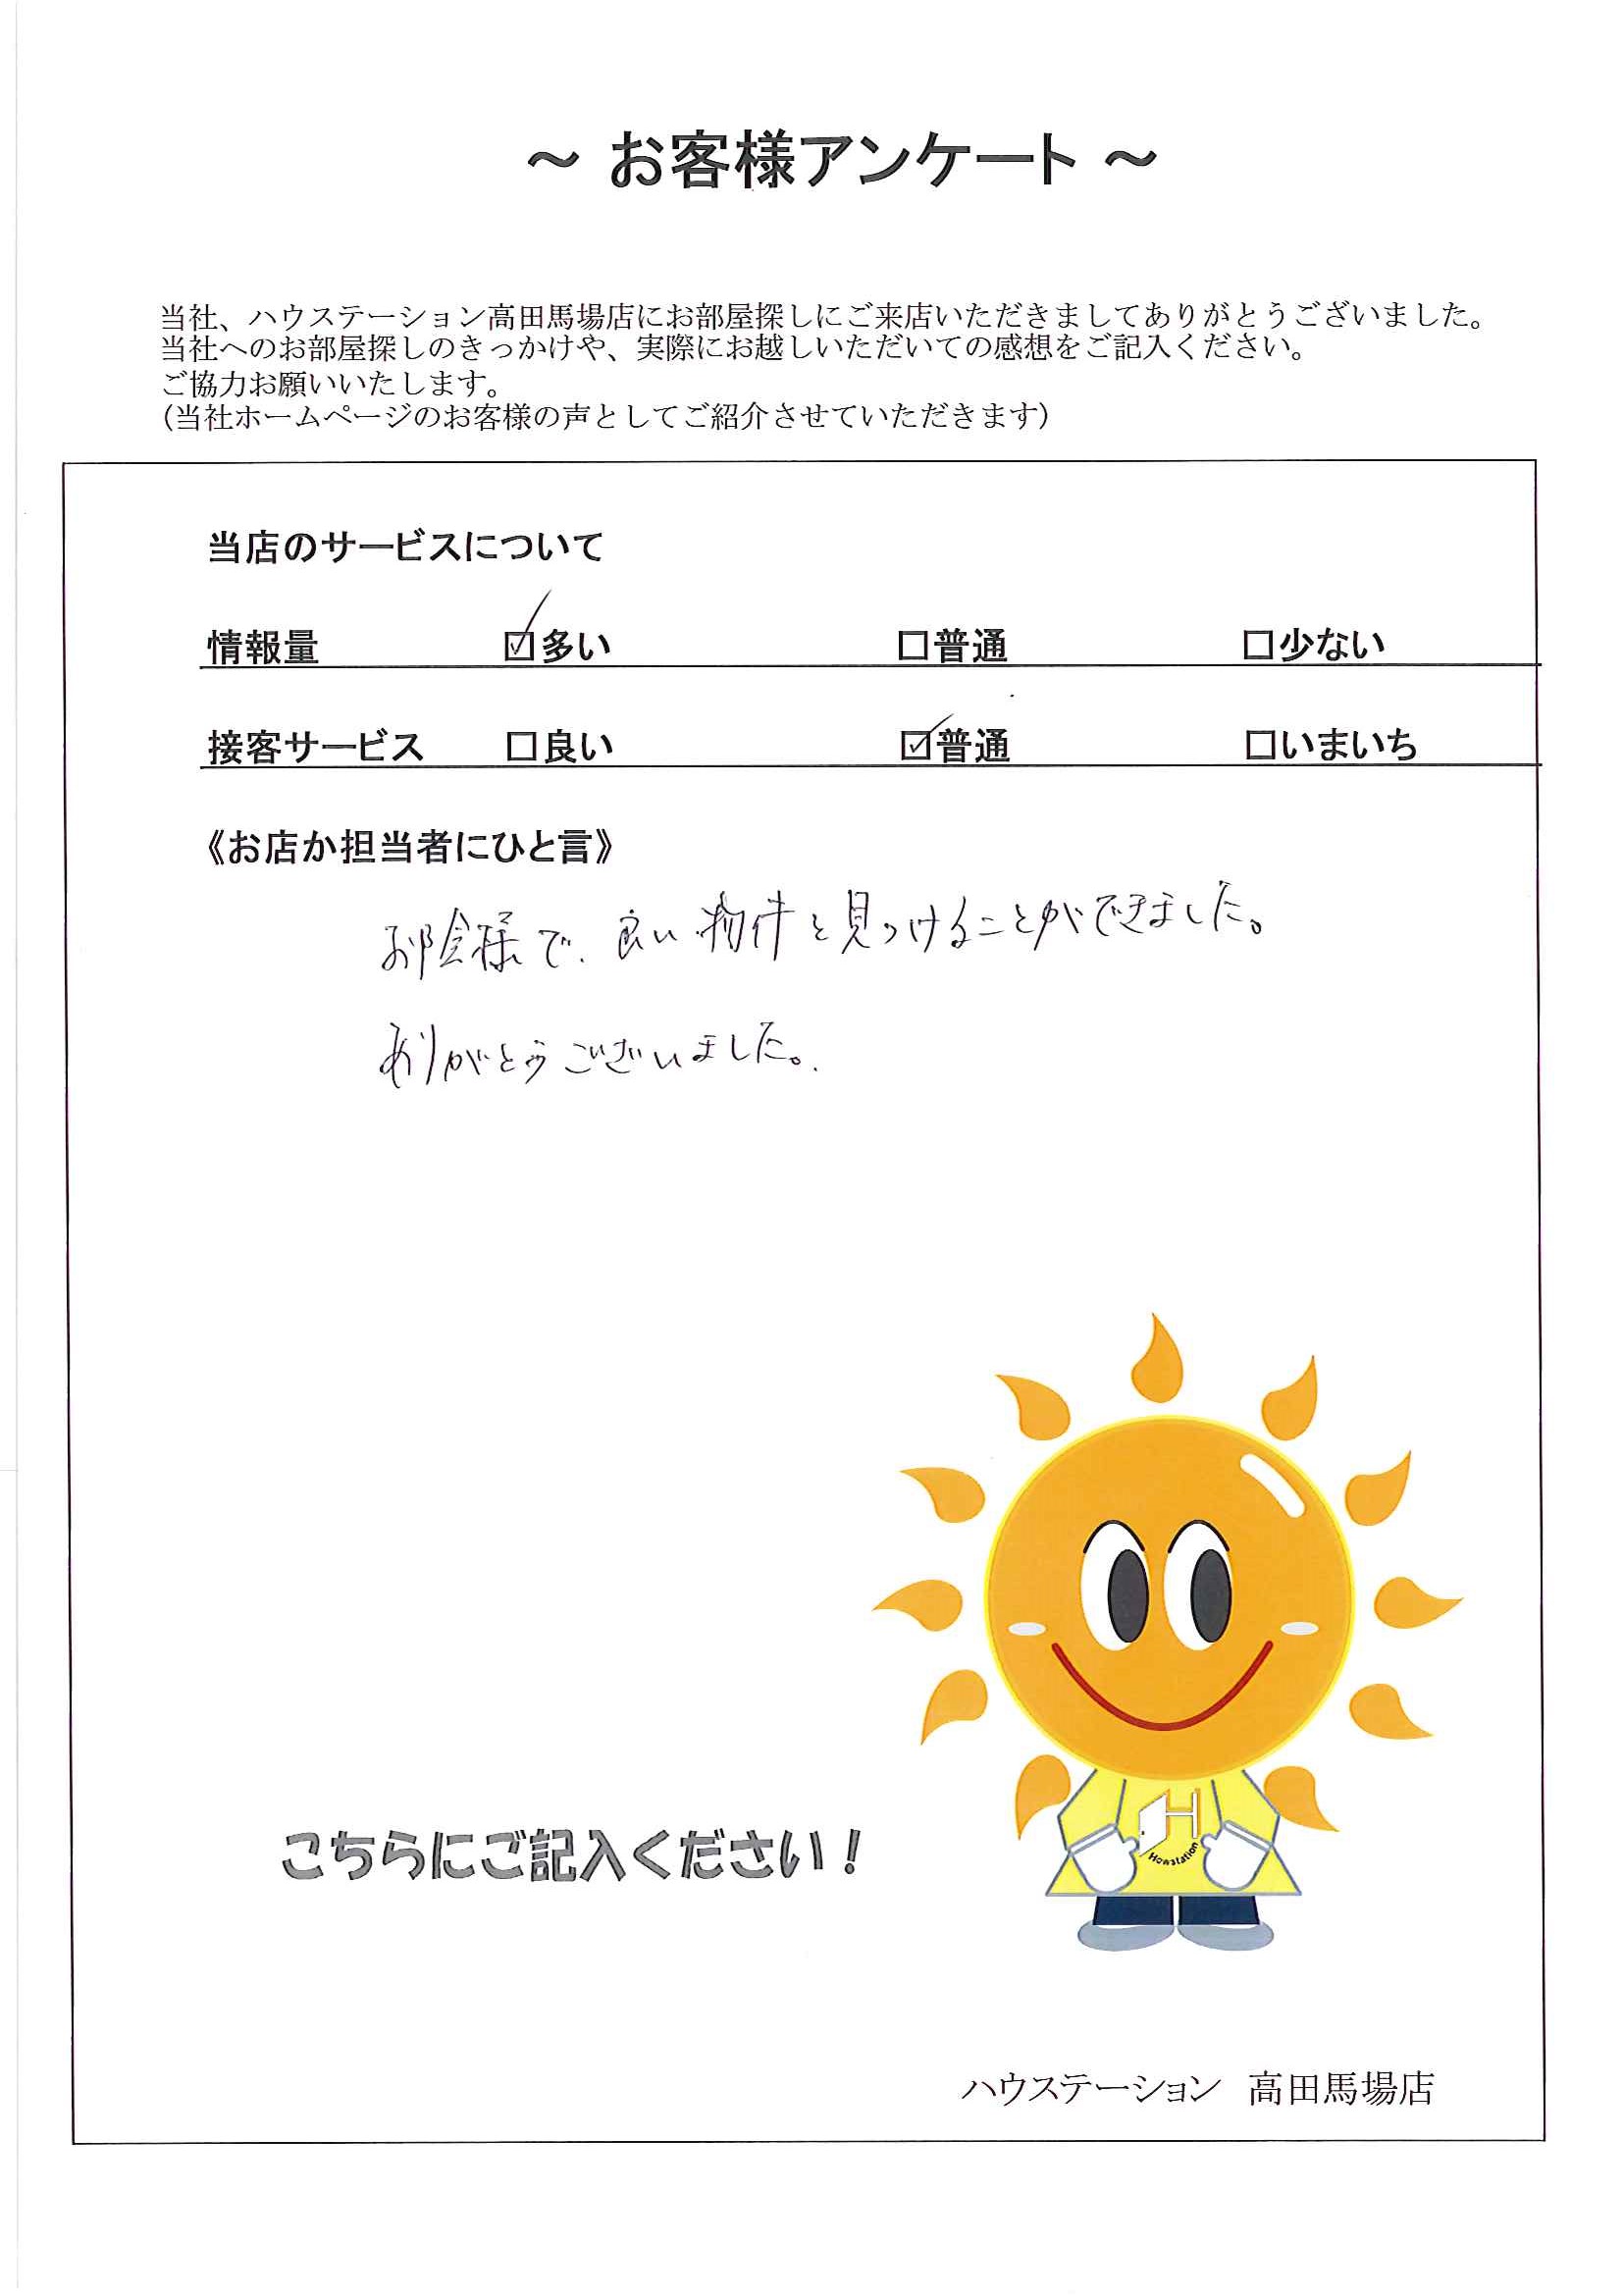 ～ お客様アンケート ～
当社、ハウステーション高田馬場店にお部屋探しにご来店いただきましてありがとうございました。
当社へのお部屋探しのきっかけや、実際にお越しいただいての感想をご記入ください。
ご協力お願いいたします。
（当社ホームページのお客様の声としてご紹介させていただきます）
当店のサービスについて
情報量 ☑多い □普通 □少ない
接客サービス □良い ☑普通 □いまいち
《お店か担当者にひと言》
お陰様で、良い物件と見つけることができました。
ありがとうございました。
H
Howstation
こちらにご記入ください！
ハウステーション 高田馬場店